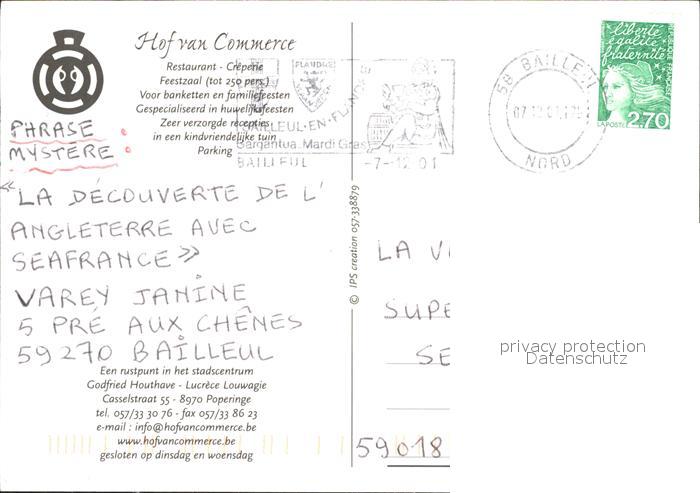 Hof van Commerce
Restaurant - Crêperie
Feestzaal (tot 250 pers.)
Voor banketten en familiefeesten
Gespecialiseerd in huwelijksfeesten
Zeer verzorgde recepties
in een kindvriendelijke tuin
Parking
PHRASE
MYSTERE :
"LA DÉCOUVERTE DE L'
ANGLETERRE AVEC
SEAFRANCE"
VAREY JANINE
5 PRÉ AUX CHÊNES
59270 BAILLEUL
Een rustpunt in het stadscentrum
Godfried Houthave - Lucrèce Louwagie
Casselstraat 55 - 8970 Poperinge
tel. 057/33 30 76 - fax 057/33 86 23
e-mail : info@hofvancommerce.be
www.hofvancommerce.be
gesloten op dinsdag en woensdag
© IPS creation 057-338879
FLANDRE
BAILLEUL-EN-FLANDRE
Gargantua Mardi Gras
BAILLEUL
-7-12 01
59 BAILLEUL
NORD
liberté
égalité
fraternité
LA POSTE 2,70
LA VI
SUPE
SE
59018
privacy protection
Datenschutz